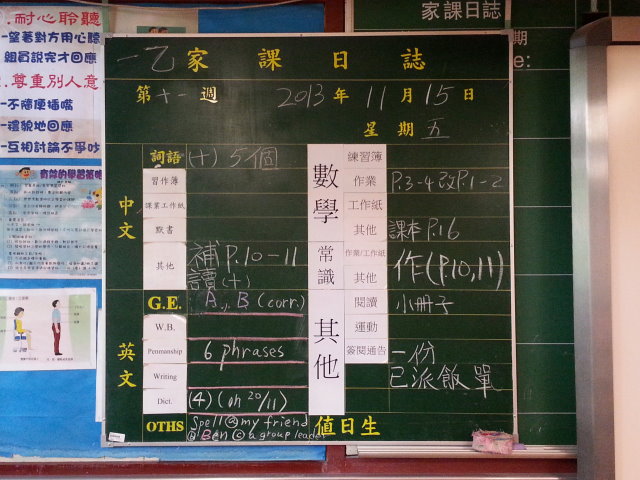 家課日誌
耐心聆聽
一望著對方用心聽
組員說完才回應
尊重別人意
一不隨便插嘴
一禮貌地回應
一互相討論不爭吵
一乙 家課日誌
第十一週 2013年11月15日
星期五
中文
詞語 (十) 5個
習作簿
課業工作紙
默書
其他 補 P.10-11
讀(十)
英文
G.E. A., B (corr.)
W.B.
Penmanship 6 phrases
Writing
Dict. (4) (on 20/11)
OTHS Spell ⓐ my friend
ⓑ Ben ⓒ a group leader
數學
練習簿
作業 P.3-4 改P.1-2
工作紙
其他 課本 P.16
常識
作業/工作紙 作(P.10,11)
其他
其他
閱讀 小冊子
運動
簽閱通告 一份
已派飯單
值日生
期
e: